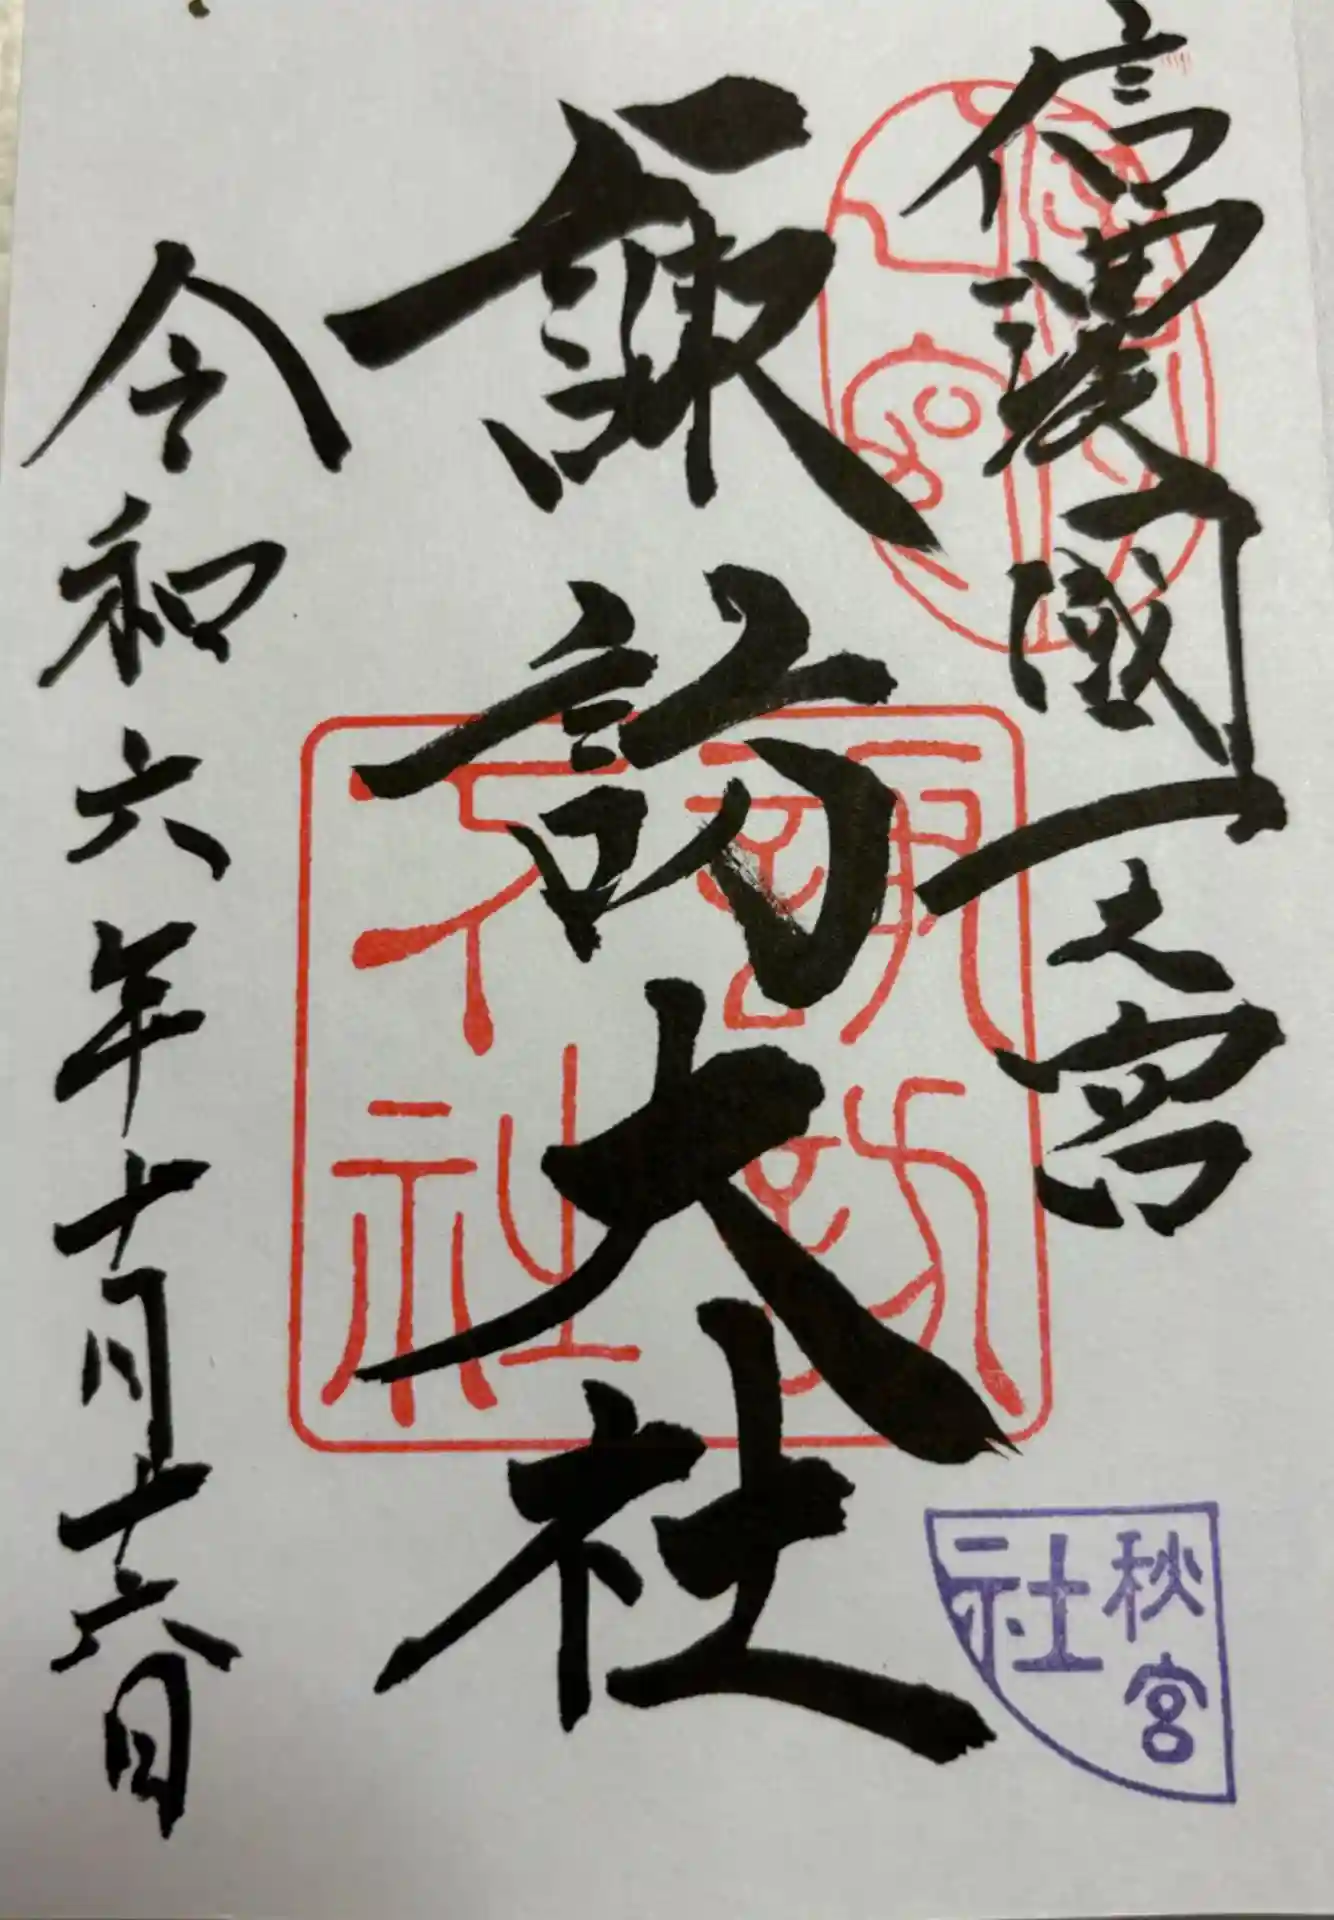 信濃國一之宮
諏訪大社
令和六年十月十六日
諏訪
社
秋宮
社